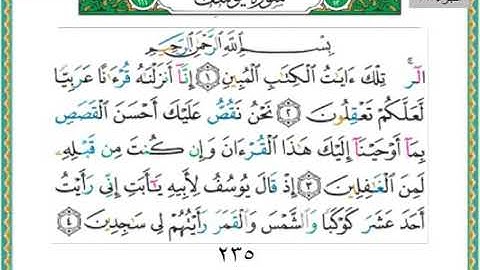 سورة يوسف
بِسْمِ ٱللَّهِ ٱلرَّحْمَٰنِ ٱلرَّحِيمِ
الٓر ۚ تِلْكَ ءَايَٰتُ ٱلْكِتَٰبِ ٱلْمُبِينِ ١ إِنَّآ أَنزَلْنَٰهُ قُرْءَٰنًا عَرَبِيًّا
لَّعَلَّكُمْ تَعْقِلُونَ ٢ نَحْنُ نَقُصُّ عَلَيْكَ أَحْسَنَ ٱلْقَصَصِ
بِمَآ أَوْحَيْنَآ إِلَيْكَ هَٰذَا ٱلْقُرْءَانَ وَإِن كُنتَ مِن قَبْلِهِۦ
لَمِنَ ٱلْغَٰفِلِينَ ٣ إِذْ قَالَ يُوسُفُ لِأَبِيهِ يَٰٓأَبَتِ إِنِّى رَأَيْتُ
أَحَدَ عَشَرَ كَوْكَبًا وَٱلشَّمْسَ وَٱلْقَمَرَ رَأَيْتُهُمْ لِى سَٰجِدِينَ ٤
٢٣٥